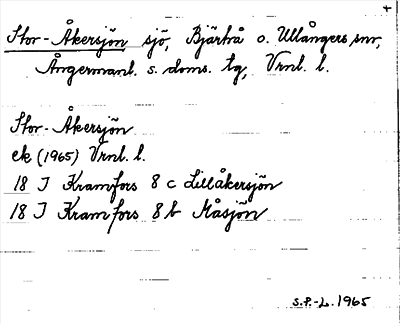 Stor-Åkersjön sjö, Bjärtrå o. Ullångers snr,
Ångermanl. s. doms. tg, Vrnl. l.
Stor-Åkersjön
ek (1965) Vrnl. l.
18 J Kramfors 8 c Lillåkersjön
18 J Kramfors 8 b Måsjön
S.P.-L. 1965